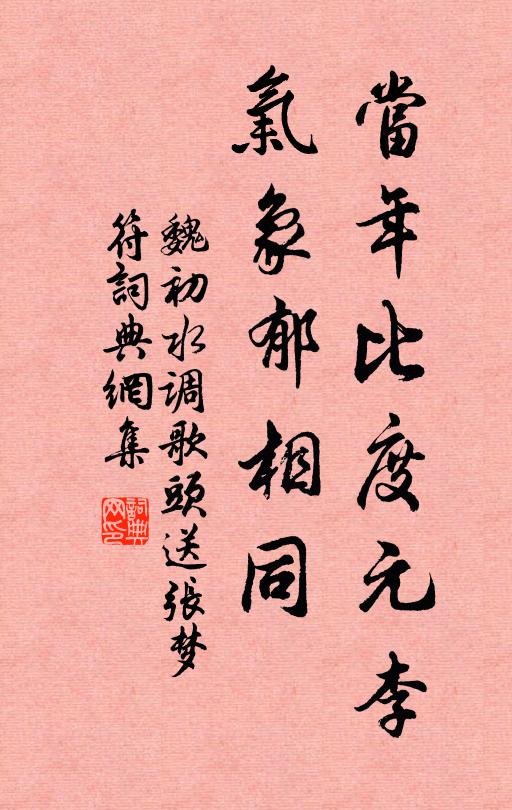 當年比度元李
氣象郁相同
魏初水调歌頭送張梦
符詞典網集
詞典
网印